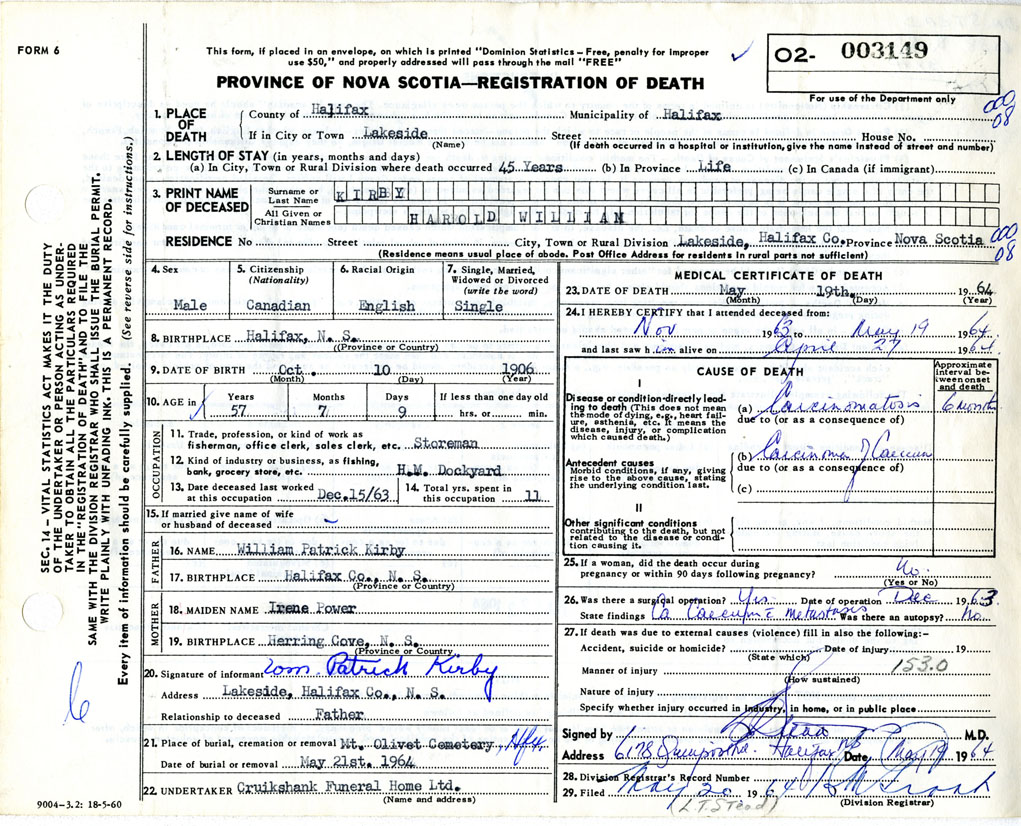 FORM 6
This form, if placed in an envelope, on which is printed "Dominion Statistics – Free, penalty for improper
use $50," and properly addressed will pass through the mail "FREE"
PROVINCE OF NOVA SCOTIA—REGISTRATION OF DEATH
O2- 003149
For use of the Department only
000
08
SEC. 14 – VITAL STATISTICS ACT MAKES IT THE DUTY
OF THE UNDERTAKER OR PERSON ACTING AS UNDER-
TAKER TO OBTAIN ALL THE PARTICULARS REQUIRED
IN THE "REGISTRATION OF DEATH" AND TO FILE THE
SAME WITH THE DIVISION REGISTRAR WHO SHALL ISSUE THE BURIAL PERMIT.
WRITE PLAINLY WITH UNFADING INK. THIS IS A PERMANENT RECORD.
Every item of information should be carefully supplied. (See reverse side for instructions.)
1. PLACE OF DEATH
County of Halifax Municipality of Halifax
If in City or Town Lakeside Street House No.
(Name) (If death occurred in a hospital or institution, give the name instead of street and number)
2. LENGTH OF STAY (in years, months and days)
(a) In City, Town or Rural Division where death occurred 45 Years (b) In Province Life (c) In Canada (if immigrant)
3. PRINT NAME OF DECEASED
Surname or Last Name KIRBY
All Given or Christian Names HAROLD WILLIAM
RESIDENCE No Street City, Town or Rural Division Lakeside, Halifax Co. Province Nova Scotia
000
08
(Residence means usual place of abode. Post Office Address for residents in rural parts not sufficient)
4. Sex
Male
5. Citizenship
(Nationality)
Canadian
6. Racial Origin
English
7. Single, Married,
Widowed or Divorced
(write the word)
Single
8. BIRTHPLACE Halifax, N. S.
((Province or Country)
9. DATE OF BIRTH Oct. 10 1906
(Month) (Day) (Year)
10. AGE in
Years Months Days If less than one day old
57 7 9 hrs. or min.
OCCUPATION
11. Trade, profession or kind of work as
fisherman, office clerk, sales clerk, etc. Storeman
12. Kind of industry or business, as fishing,
bank, grocery store, etc. H.M. Dockyard
13. Date deceased last worked
at this occupation Dec.15/63
14. Total yrs. spent in
this occupation 11
15. If married give name of wife
or husband of deceased
FATHER
16. NAME William Patrick Kirby
17. BIRTHPLACE Halifax Co., N. S.
(Province or Country)
MOTHER
18. MAIDEN NAME Irene Power
19. BIRTHPLACE Herring Cove, N. S.
(Province or Country
20. Signature of informant Wm. Patrick Kirby
Address Lakeside, Halifax Co., N. S.
Relationship to deceased Father
6
21. Place of burial, cremation or removal Mt. Olivet Cemetery, Hfx.
Date of burial or removal May 21st. 1964
22. UNDERTAKER Cruikshank Funeral Home Ltd.
(Name and address)
9004–3.2: 18-5-60
MEDICAL CERTIFICATE OF DEATH
23. DATE OF DEATH May 19th. 1964
(Month) (Day) (Year)
24. I HEREBY CERTIFY that I attended deceased from:
Nov 1963 to May 19 1964
and last saw him alive on April 27 1964
CAUSE OF DEATH
Approximate
interval be-
tween onset
and death
I
Disease or condition directly lead-
ing to death (This does not mean
the mode of dying, e.g., heart fail-
ure, asthenia, etc. It means the
disease, injury, or complication
which caused death.)
(a) Carcinomatosis 6 months
due to (or as a consequence of)
Antecedent causes
Morbid conditions, if any, giving
rise to the above cause, stating
the underlying condition last.
(b) Carcinoma of Caecum
due to (or as a consequence of)
(c)
II
Other significant conditions
contributing to the death, but not
related to the disease or condi-
tion causing it.
25. If a woman, did the death occur during
pregnancy or within 90 days following pregnancy? No.
(Yes or No)
26. Was there a surgical operation? Yes Date of operation Dec 1963
State findings Ca Caecum c metastasis Was there an autopsy? No.
27. If death was due to external causes (violence) fill in also the following:–
Accident, suicide or homicide? Date of injury 19
(State which)
Manner of injury 153.0
(How sustained)
Nature of injury
Specify whether injury occurred in Industry, in home, or in public place
Signed by Stead M.D.
Address 6178 Halifax NS Date May 19 1964
28. Division Registrar's Record Number
29. Filed May 20 1964
(L.T. Stead) (Division Registrar)